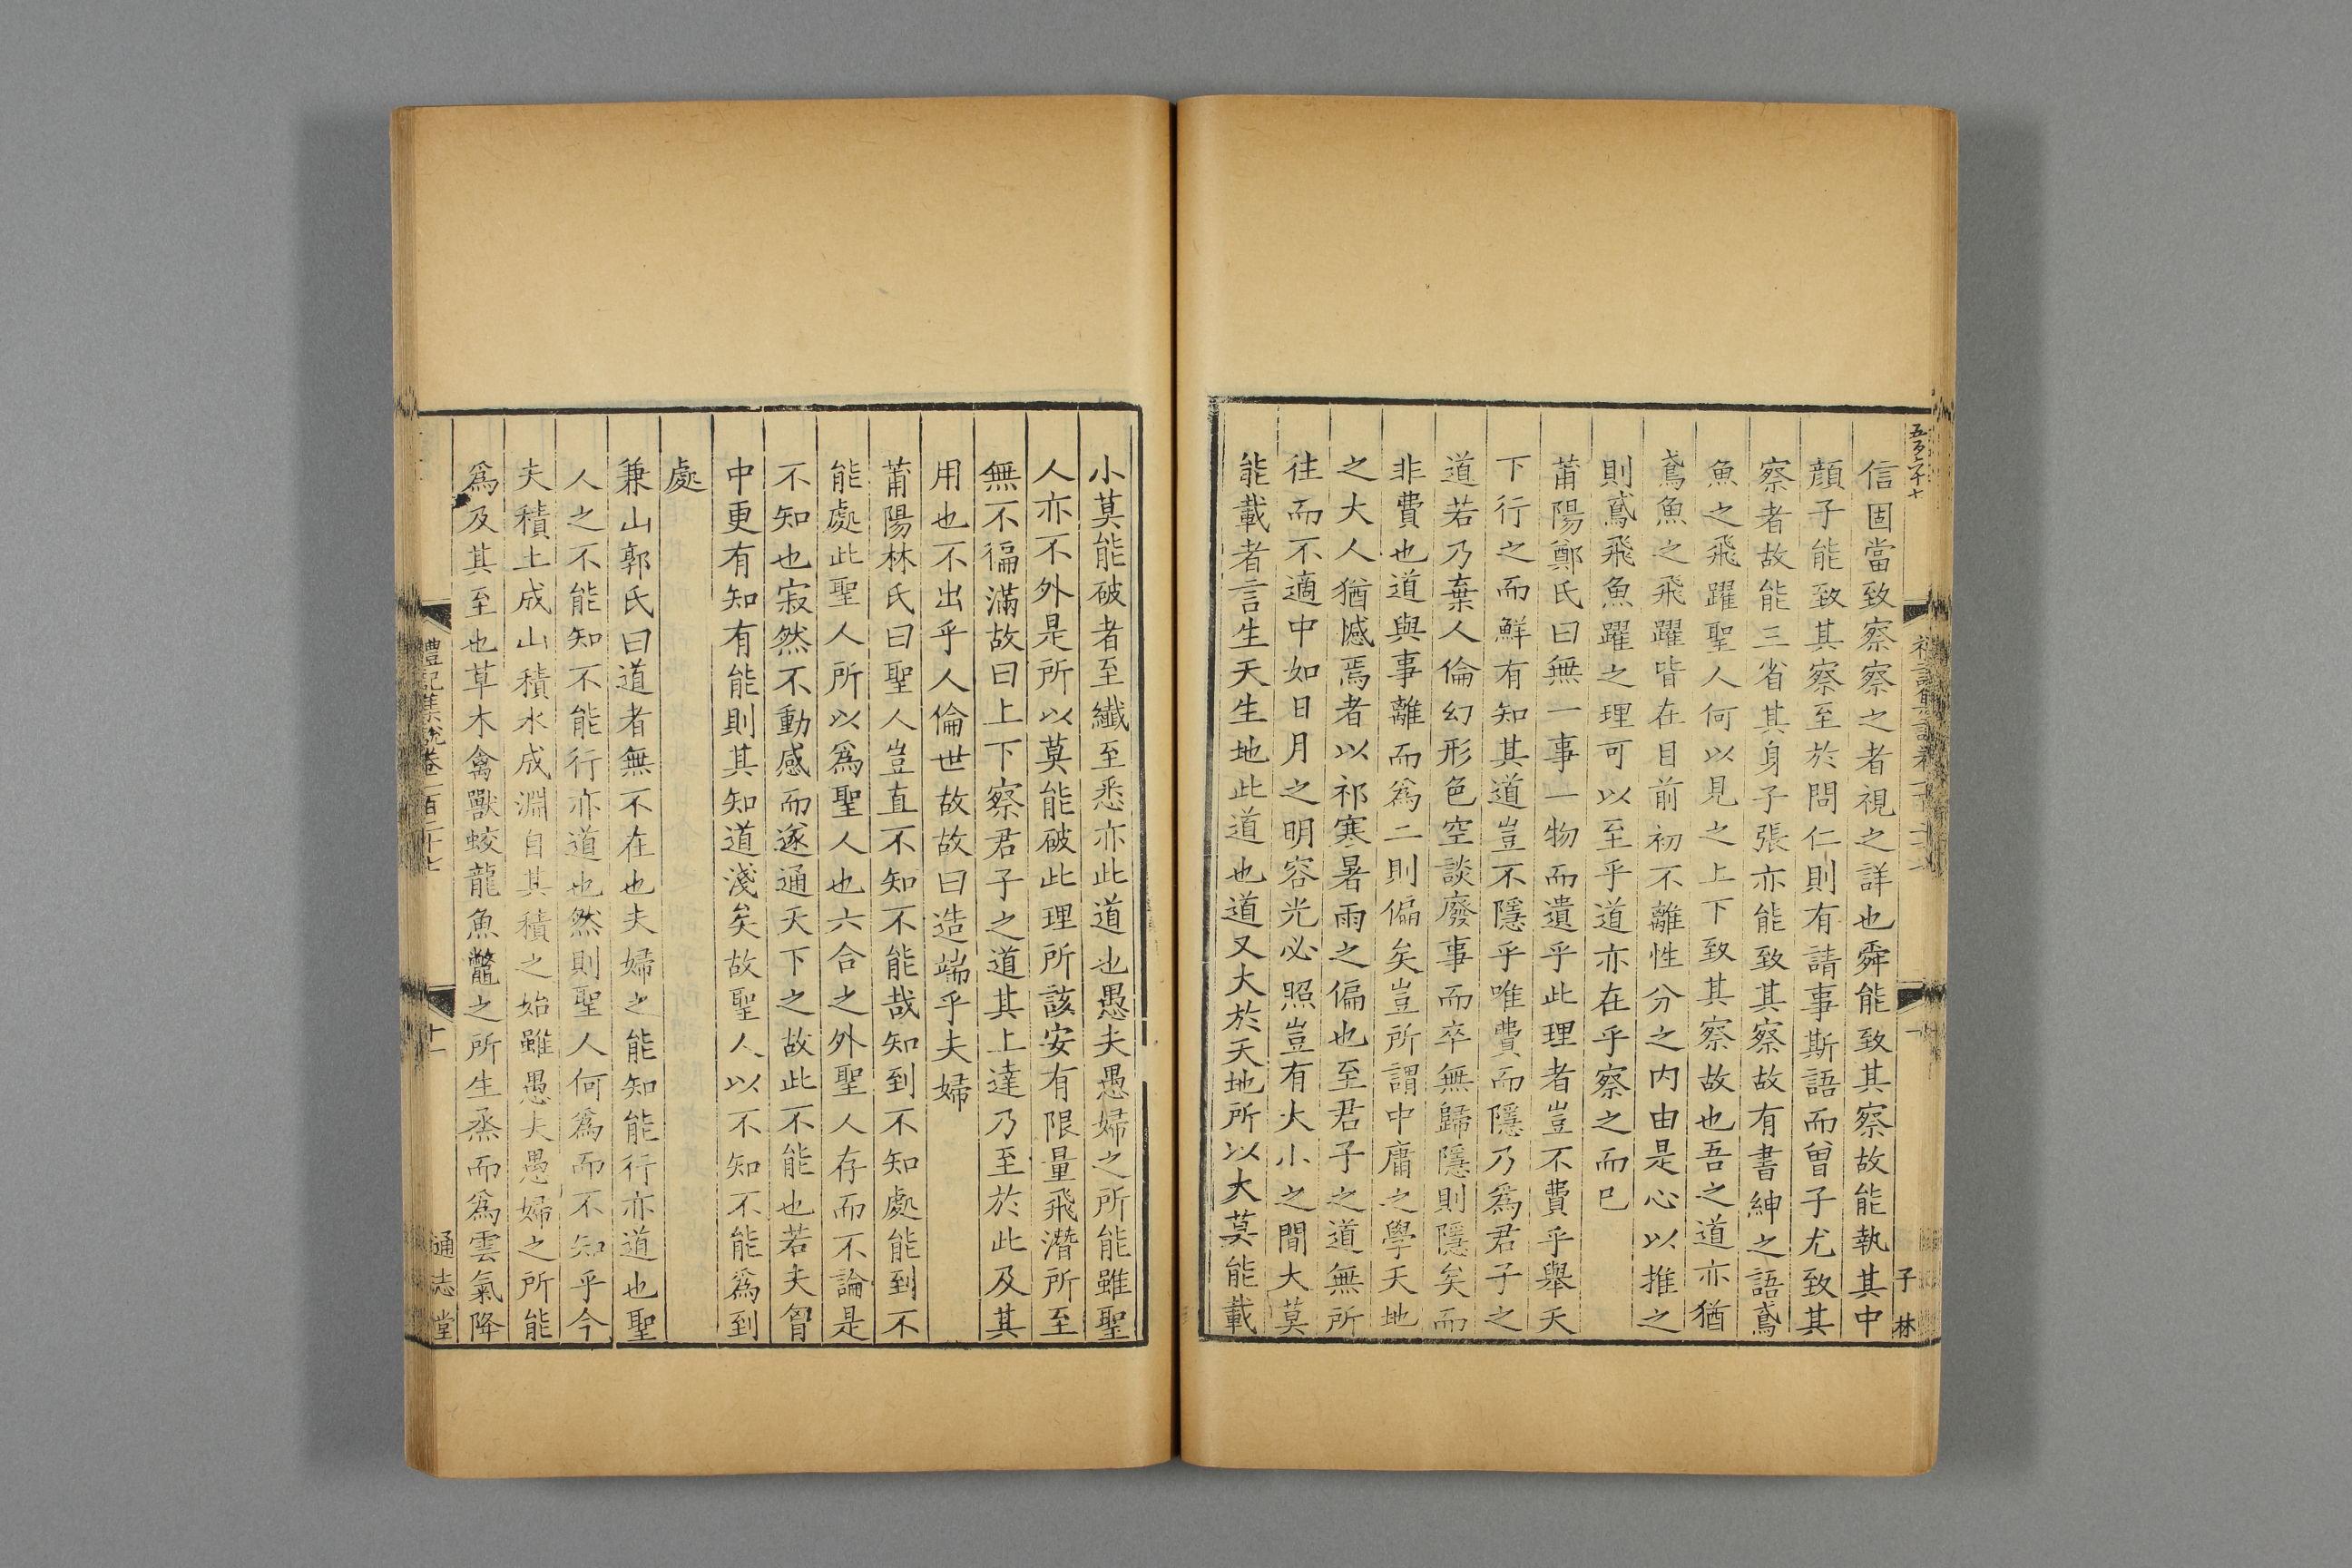 信固當致察察之者視之詳也舜能致其察故能執其中
顔子能致其察至於問仁則有請事斯語而曾子尤致其
察者故能三省其身子張亦能致其察故有書紳之語鳶
魚之飛躍聖人何以見之上下致其察故也吾之道亦猶
鳶魚之飛躍皆在目前初不離性分之内由是心以推之
則鳶飛魚躍之理可以至乎道亦在乎察之而已
莆陽鄭氏曰無一事一物而遺乎此理者豈不費乎舉天
下行之而鮮有知其道豈不隱乎唯費而隱乃爲君子之
道若乃棄人倫幻形色空談廢事而卒無歸隱則隱矣而
非費也道與事離而爲二則偏矣豈所謂中庸之學天地
之大人猶憾焉者以祁寒暑雨之偏也至君子之道無所
往而不適中如日月之明容光必照豈有大小之間大莫
能載者言生天生地此道也道又大於天地所以大莫能載
子林
小莫能破者至纖至悉亦此道也愚夫愚婦之所能雖聖
人亦不外是所以莫能破此理所該安有限量飛潛所至
無不徧滿故曰上下察君子之道其上達乃至於此及其
用也不出乎人倫世故故曰造端乎夫婦
莆陽林氏曰聖人豈直不知不能哉知到不知處能到不
能處此聖人所以爲聖人也六合之外聖人存而不論是
不知也寂然不動感而遂通天下之故此不能也若夫胷
中更有知有能則其知道淺矣故聖人以不知不能爲到
處
兼山郭氏曰道者無不在也夫婦之能知能行亦道也聖
人之不能知不能行亦道也然則聖人何爲而不知乎今
夫積土成山積水成淵自其積之始雖愚夫愚婦之所能
爲及其至也草木禽獸蛟龍魚鼈之所生烝而爲雲氣降
禮記集說卷一百二十七
十一
通志堂